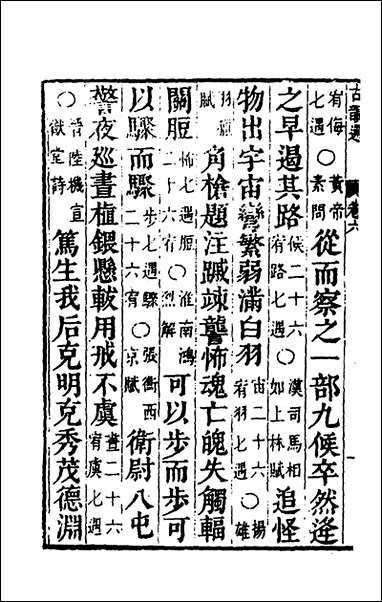 宥侮七遇○黃帝素問從而察之一部九候卒然逢
之早遏其路候二十六宥路七遇○漢司馬相如上林賦追怪
物出宇宙彎繁弱滿白羽宙二十六宥羽七遇○揚雄
羽獵賦角槍題注蹴竦讋怖魂亡魄失觸輻
關脰怖七遇脰二十六宥○淮南鴻烈解可以步而步可
以驟而驟步七遇驟二十六宥○張衡西京賦衛尉八屯
警夜巡晝植懸軷用戒不虞晝二十六宥虞七遇
○晉陸機宣猷堂詩篤生我后克明克秀茂德淵
卷六